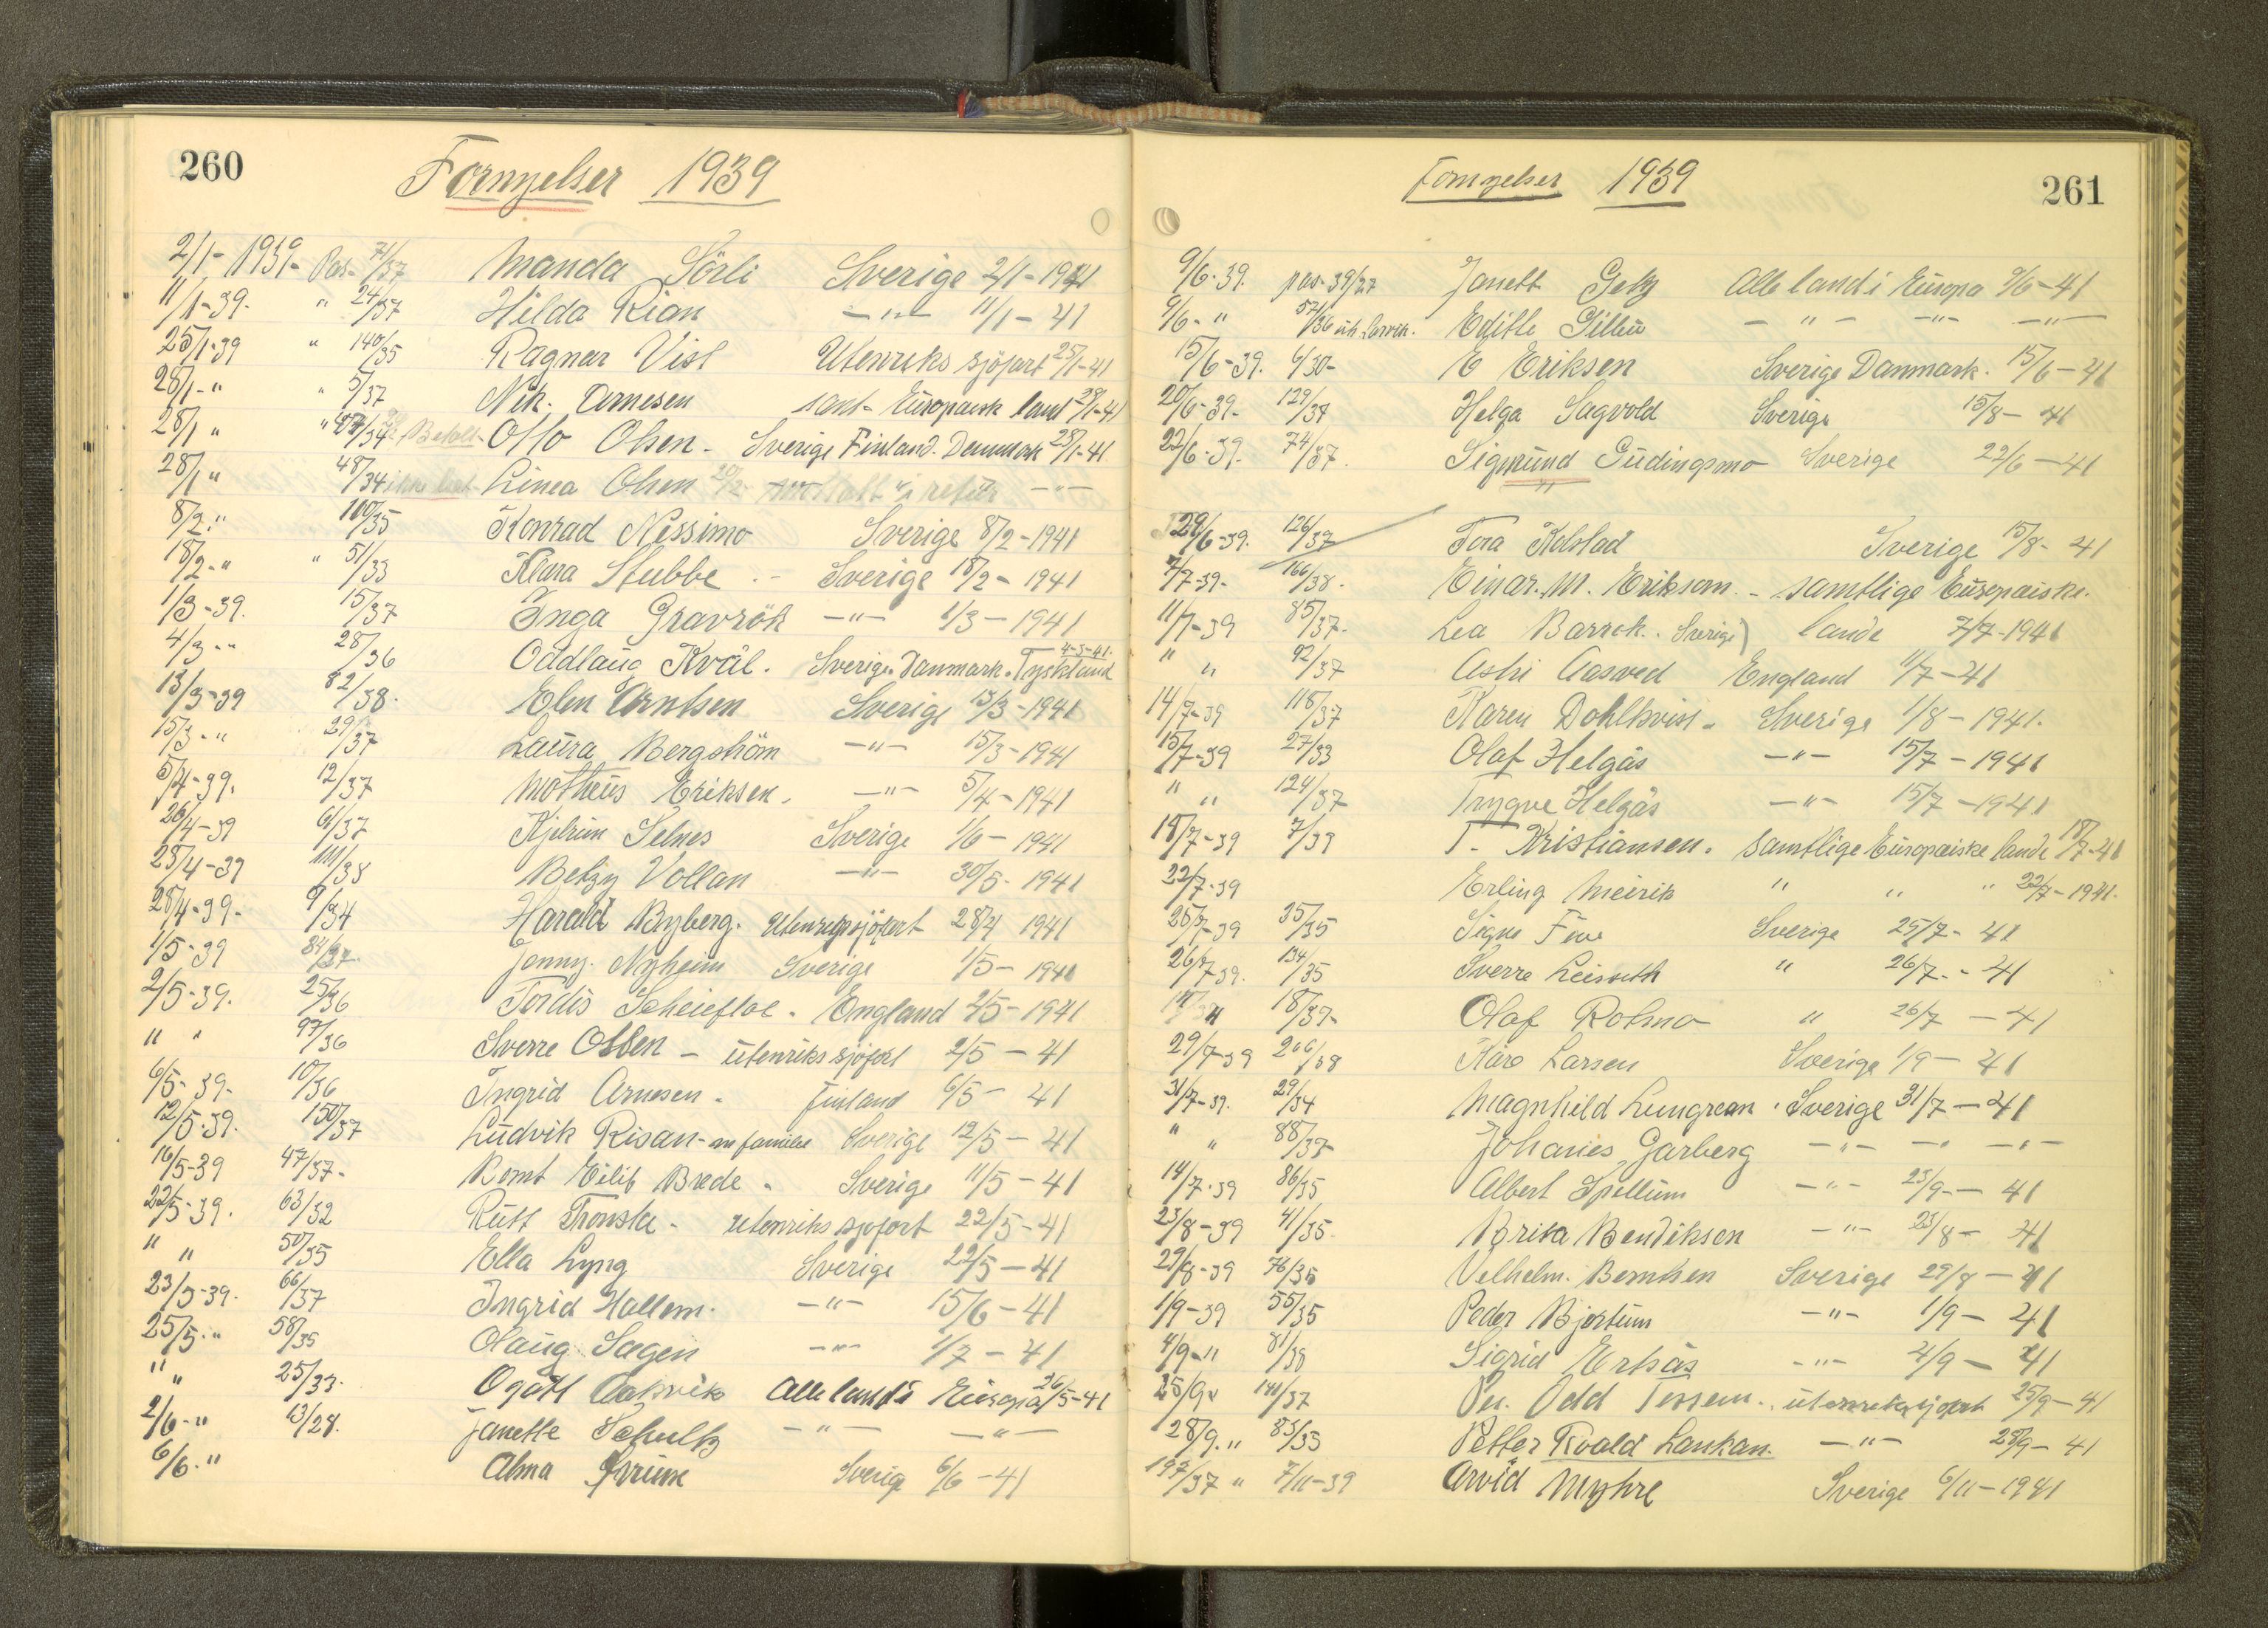 260
Fornyelser 1939
2/1-1939- Pas- 71/37 Manda Sörli Sverige 2/1-1941
11/1-39. " 24/37 Hilda Rian -"- 11/1-41
25/1-39 " 140/35 Ragnar Vist Utenriks sjöfart 25/1-41
28/1-" " 5/37 Nik. Arnesen samt- Europæisk land 28/1-41
28/1 " " 47/34 Betalt- Otto Olsen- Sverige Finland. Danmark 28/1-41
28/1 " 48/34 Linea Olsen -"-
8/2." 100/35 Konrad Nessimo Sverige 8/2-1941
18/2-" " 51/33 Klara Stubbe .- Sverige 18/2-1941
1/3-39. 15/37 Inga Gravrök -"- 1/3-1941
4/3-" 28/36 Oddlaug Kvål. Sverige. Danmark. Tyskland 4-3-41.
13/3-39 82/38. Elen Arntsen Sverige 13/3-1941
15/3-" 29/37 Laura Bergström -"- 15/3-1941
5/4-39. 12/37 Matheus Eriksen. -"- 5/4-1941
26/4-39 61/37 Kjelrun Selnes Sverige 1/6-1941
28/4-39 111/38 Betzy Vollan -"- 30/5-1941
28/4-39- 9/34 Harald Byberg. Utenriksjöfart 28/4 1941
1/5-39 84/37. Jenny. Nyheim Sverige 1/5-1941
2/5-39. 25/36 Tordis Scheiefloe. England 2/5-1941
" " 97/36 Sverre Olsen - utenriks sjöfart 2/5-41
6/5-39- 10/36 Ingrid Arnesen. Finland 6/5-41
12/5-39. 150/37 Ludvik Risan- m familie Sverige 12/5-41
16/5-39 47/37- Bernt Eilif Brede. Sverige 11/5-41
22/5-39. 63/32 Rutt Tronsta- utenriks sjöfart 22/5-41
" " 50/35 Ella Lyng Sverige 22/5-41
23/5-39. 66/37 Ingrid Hallem. -"- 15/6-41
25/5." 58/35 Olaug Sagen -"- 1/7-41
" " 25/33. Ågott Alle land i Europa 26/5-41
2/6-" 13/28. Janette Schultz -"- -"-
6/6." Alma Sverig 6/6-41
261
Fornyelser 1939
9/6-39. pas-39/27 Janett Getz Alle land i Europa 9/6-41
9/6-" 57/36 Edith Gilbu -"- -"- -"-
15/6-39. 6/30- E Eriksen Sverige Danmark. 15/6-41
20/6-39- 129/37 Helga Sagvold Sverige 15/8-41
22/6-39. 74/37. Sigmund Gudingsmo Sverige 22/6-41
29/6-39. 126/37 Tora Kolstad Sverige 15/8-41
7/7-39- 166/38. Einar. M. Eriksen.- samtlige Europæiske.
11/7-39 85/37. Lea Barrek. Sverige) lande 7/7-1941
" " 92/37 Aasved England 11/7-41
14/7-39 118/37 Karen Dahlkvist- Sverige 1/8-1941.
15/7-39 27/33 Olaf Helgås -"- 15/7-1941
" " 124/37 Trygve Helgås -"- 15/7-1941
18/7-39 7/39 T. Kristiansen. Samtlige Europæiske lande 18/7-41
22/7-39 Erling Meirik " " " 22/7-1941.
25/7-39 35/35 Signe Five Sverige 25/7-41
26/7-39. 134/35 Sverre Leisseth " 26/7-41
18/37- Olaf Rotmo " 26/7-41
29/7-39 206/38 Kåre Larsen Sverige 1/9-41
31/7-39. 29/34 Magnhild Lungrean. Sverige 31/7-41
" " 88/37 Johanes Garberg -"- -" -"-
14/7-39 86/35 Albert Spillum -"- 23/9-41
23/8-39 41/35. Brita Bendiksen -"- 23/8-41
29/8-39 76/35 Velhelm. Berntsen Sverige 29/8-41
1/9-39 55/35 Peder Bjertum -"- 1/9-41
4/9-" 81/38 Sigrid Ertsås -"- 4/9-41
25/9" 141/37 Odd Tessem. utenriks sjöfart 25/9-41
28/9." 83/35 Petter Roald Laukan. -"- 28/9-41
197/37 " 7/11-39 Arvid Myhre Sverige 6/11-1941